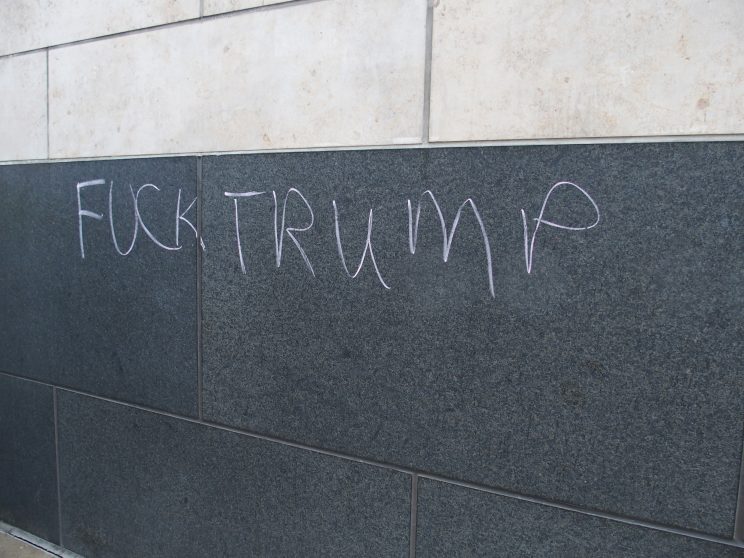 FUCK TRUMP